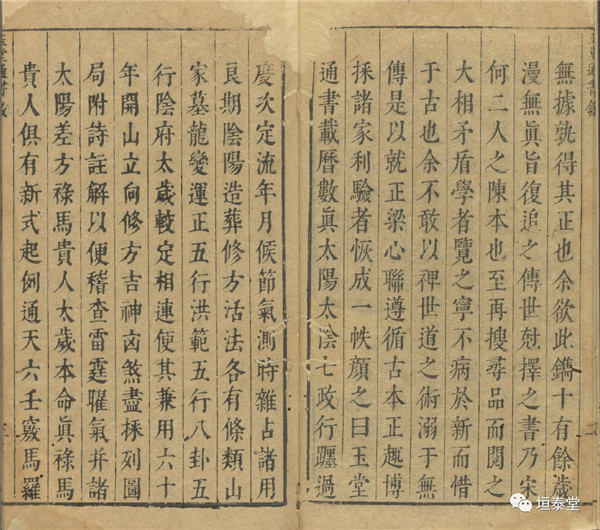 無據孰得其正也余欲此鐫十有餘歲
漫無眞旨復追之傳世尅擇之書乃宋
何二人之陳本也至再搜尋品而閱之
大相矛盾學者覽之寧不病於新而惜
于古也余不敢以裨世道之術溺于無
傳是以就正梁心聯遵循古本正趣博
採諸家利驗者恢成一帙顔之曰玉堂
通書載曆數眞太陽太陰七政行躔過
慶次定流年月候節氣測時雜占諸用
良期陰陽造葬修方活法各有條類山
家墓龍變運正五行洪範五行八卦五
行陰府太歲較定相連便其兼用六十
年開山立向修方吉神㐫煞盡採列圖
局附詩註解以便稽查雷霆氣并諸
太陽差方祿馬貴人太歲本命眞祿馬
貴人俱有新式起例通天六壬竅馬羅
垣泰堂